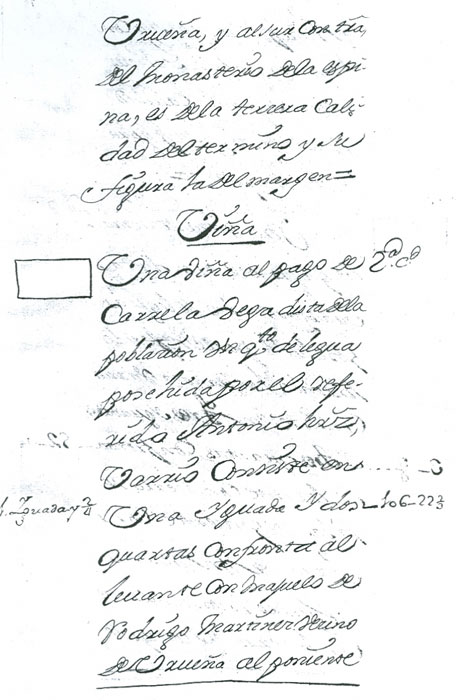 Urueña, y al sur Contra,
del monasterio dela espi-
na, es dela terrera Cali-
dad del termino y su
figura la del margen =
Viña
Una viña al pago de 2ª Cd
Carrela Vega dista dela
poblazon un qto de legua
poschida por el refe-
rido Antonio hrz,
Varrio Consiste en
1. Yguada y 2/4 Una Yguada Y dos 106-22 2/3
quartas Confronta al
levante con majuelo de
Rodrigo Martinez Vecino
de Urueña al poniente